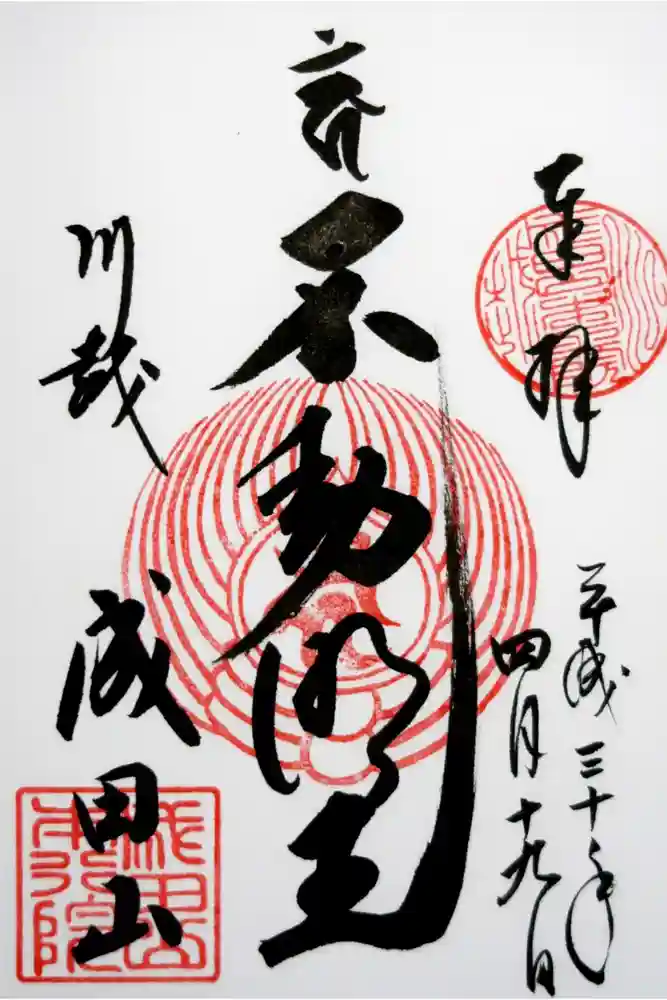 奉拝
平成三十年
四月十九日
不動明王
川越
成田山
成田山
本行院